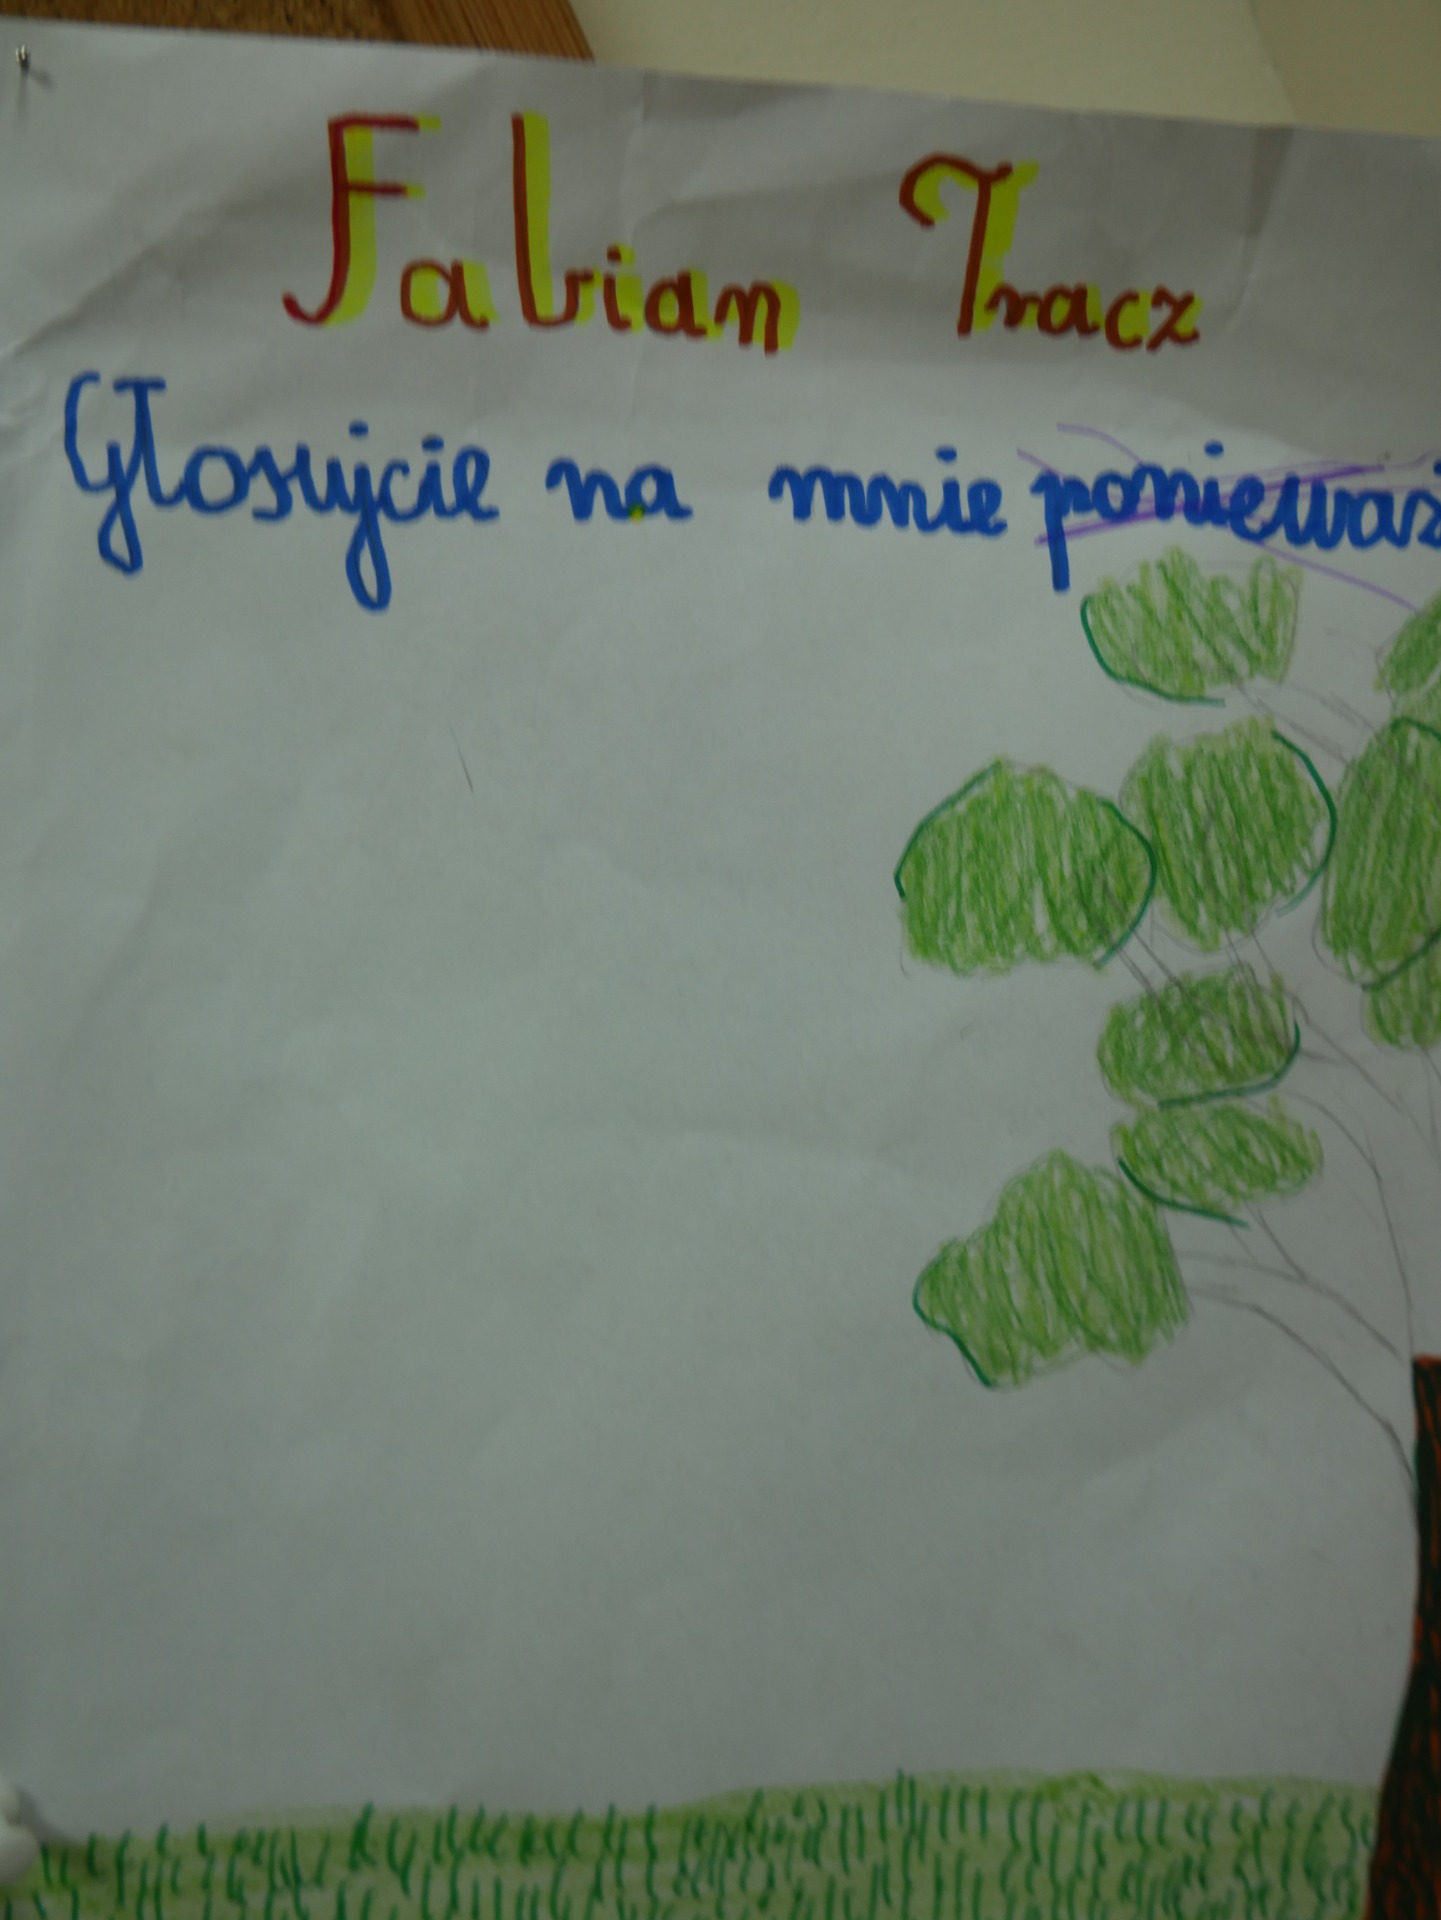 Fabian Tracz
Głosujcie na mnie ponieważ